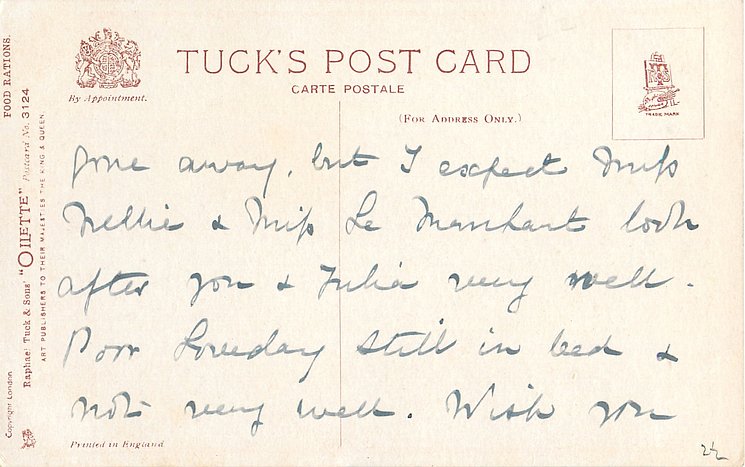 FOOD RATIONS.
Raphael Tuck & Sons' "OILETTE" Postcard No. 3124
ART PUBLISHERS TO THEIR MAJESTIES THE KING & QUEEN.
Copyright London
By Appointment.
TUCK'S POST CARD
CARTE POSTALE
(FOR ADDRESS ONLY.)
TRADE MARK
gone away, but I expect Miss
Nellie & Miss Le Marchant look
after you & Julia very well.
Poor Loveday still in bed &
not very well. Wish you
Printed in England